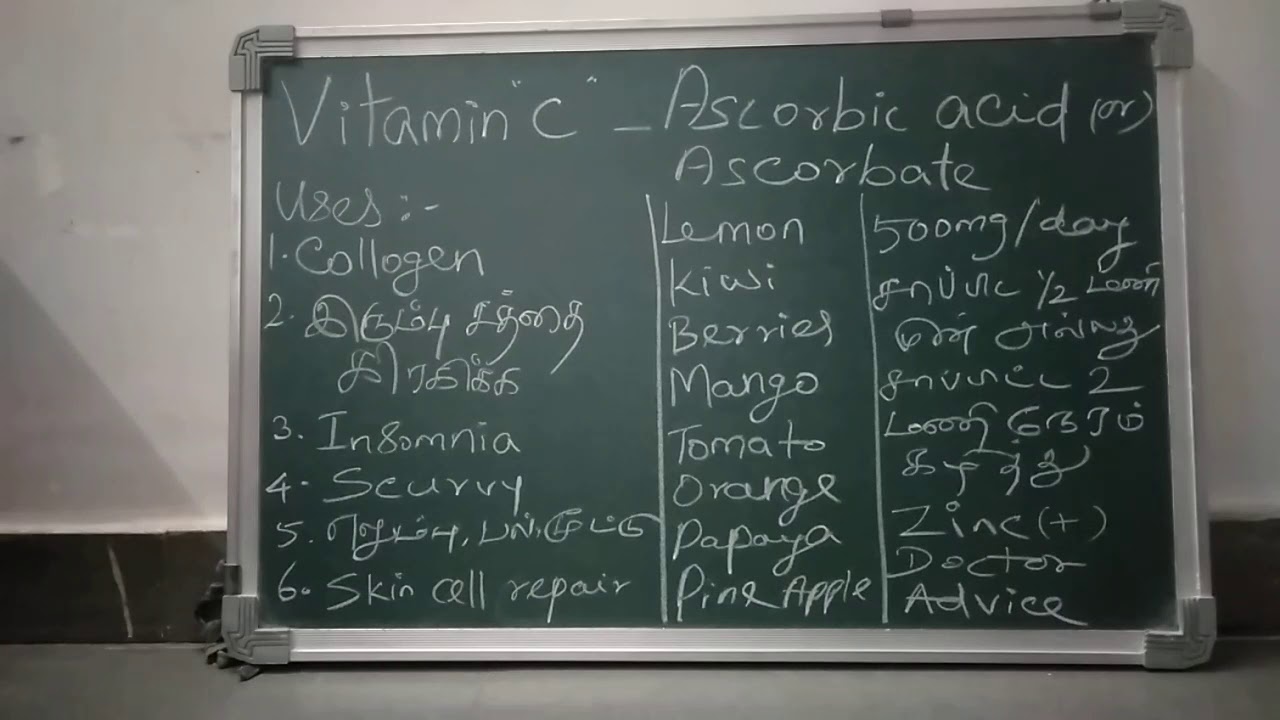 Vitamin "C" - Ascorbic acid (or)
Ascorbate
Uses :-
1. Collogen
2. இரும்பு சத்தை
கிரகிக்க
3. Insomnia
4. Scurvy
5. எலும்பு, பல், மூட்டு
6. Skin cell repair
Lemon
Kiwi
Berries
Mango
Tomato
Orange
Papaya
Pine Apple
500mg/day
சாப்பிட 1/2 மணி
முன் அல்லது
சாப்பிட்ட 2
மணி நேரம்
கழித்து
Zinc (+)
Doctor
Advice